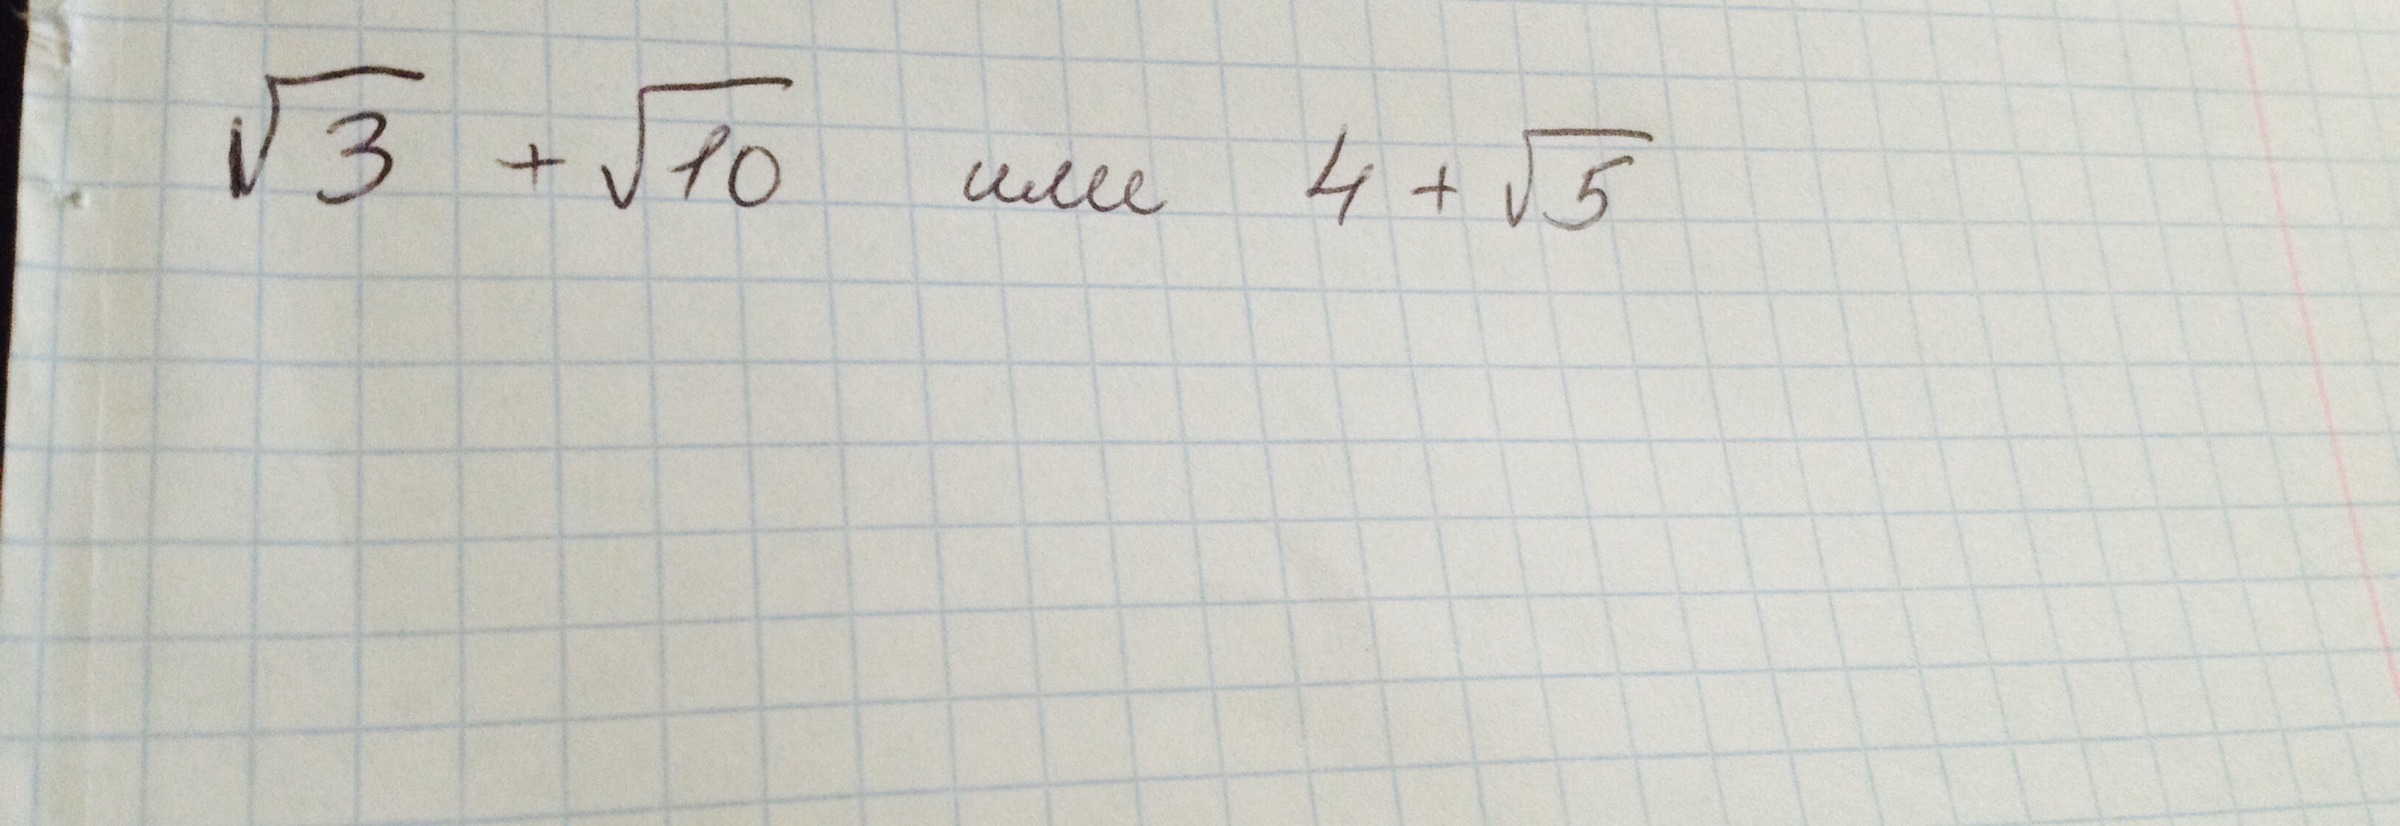 √3 + √10 или 4 + √5